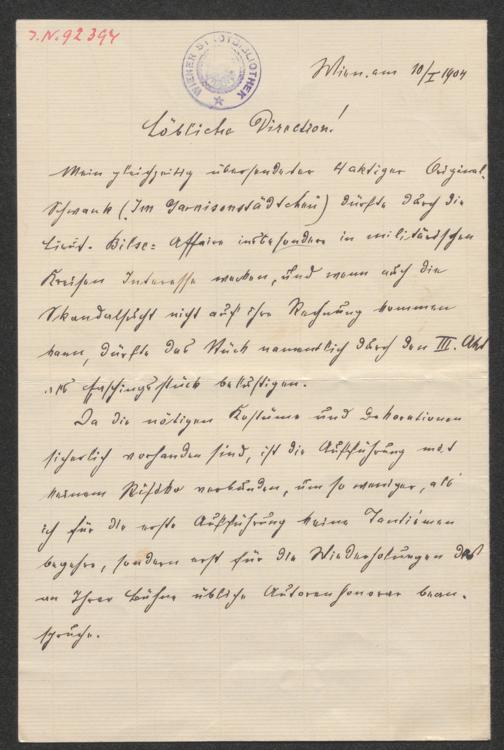 J.N. 92394
WIENER STADTBIBLIOTHEK
Wien. am 10/I 1904
Löbliche Direction!
Mein gleichzeitig übersendeter 4aktiger Original-
Schwank (Im Garnisonstädtchen) dürfte durch die
Lieut. Bilse= Affaire insbesondere in militärischen
Kreisen Interesse wecken, und wenn auch die
Skandalsucht nicht auf ihre Rechnung kommen
kann, dürfte das Stück namentlich durch den III. Akt
als Faschingsstück belustigen.
Da die nötigen Kostüme und Dekorationen
sicherlich vorhanden sind, ist die Aufführung mit
keinem Risiko verbunden, um so weniger, als
ich für die erste Aufführung keine Tantiemen
begehre, sondern erst für die Wiederholungen das
an Ihrer Bühne übliche Autorenhonorar bean-
spruche.